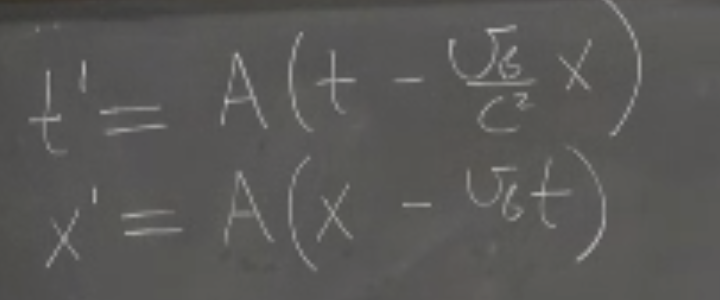 t' = A(t - v₆/c² x)
x' = A(x - v₆t)